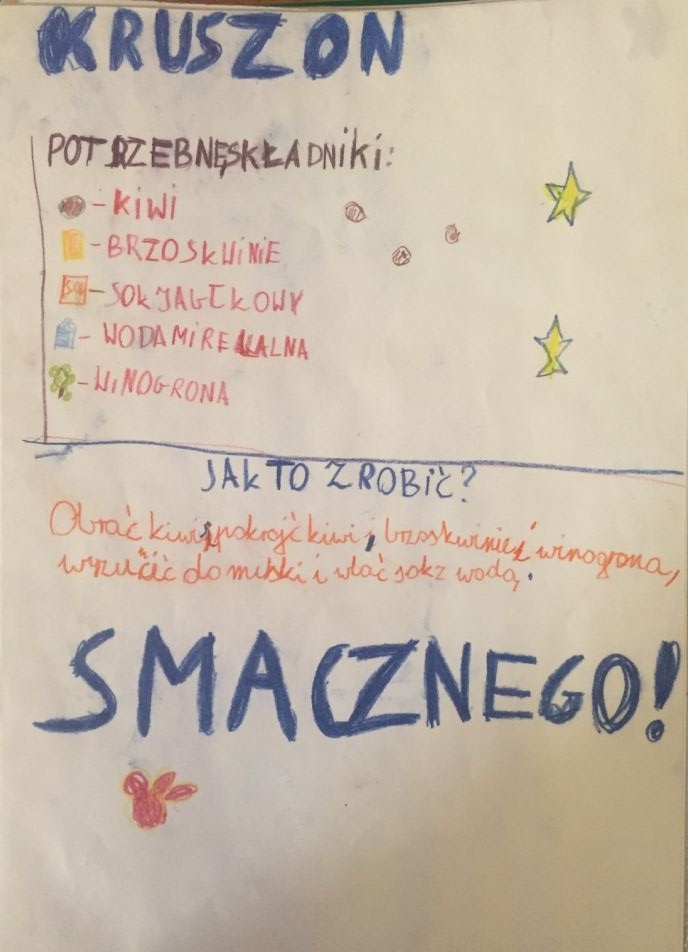 KRUSZON
POTRZEBNĘSKŁADNIKI:
- KIWI
- BRZOSKWINIE
SOK - SOK JABŁKOWY
- WODA MIRELALNA
- WINOGRONA
JAK TO ZROBIĆ?
Obrać kiwi, pokrojć kiwi, brzoskwinie i winogrona,
wrzucić do miski i wlać sok z wodą.
SMACZNEGO!